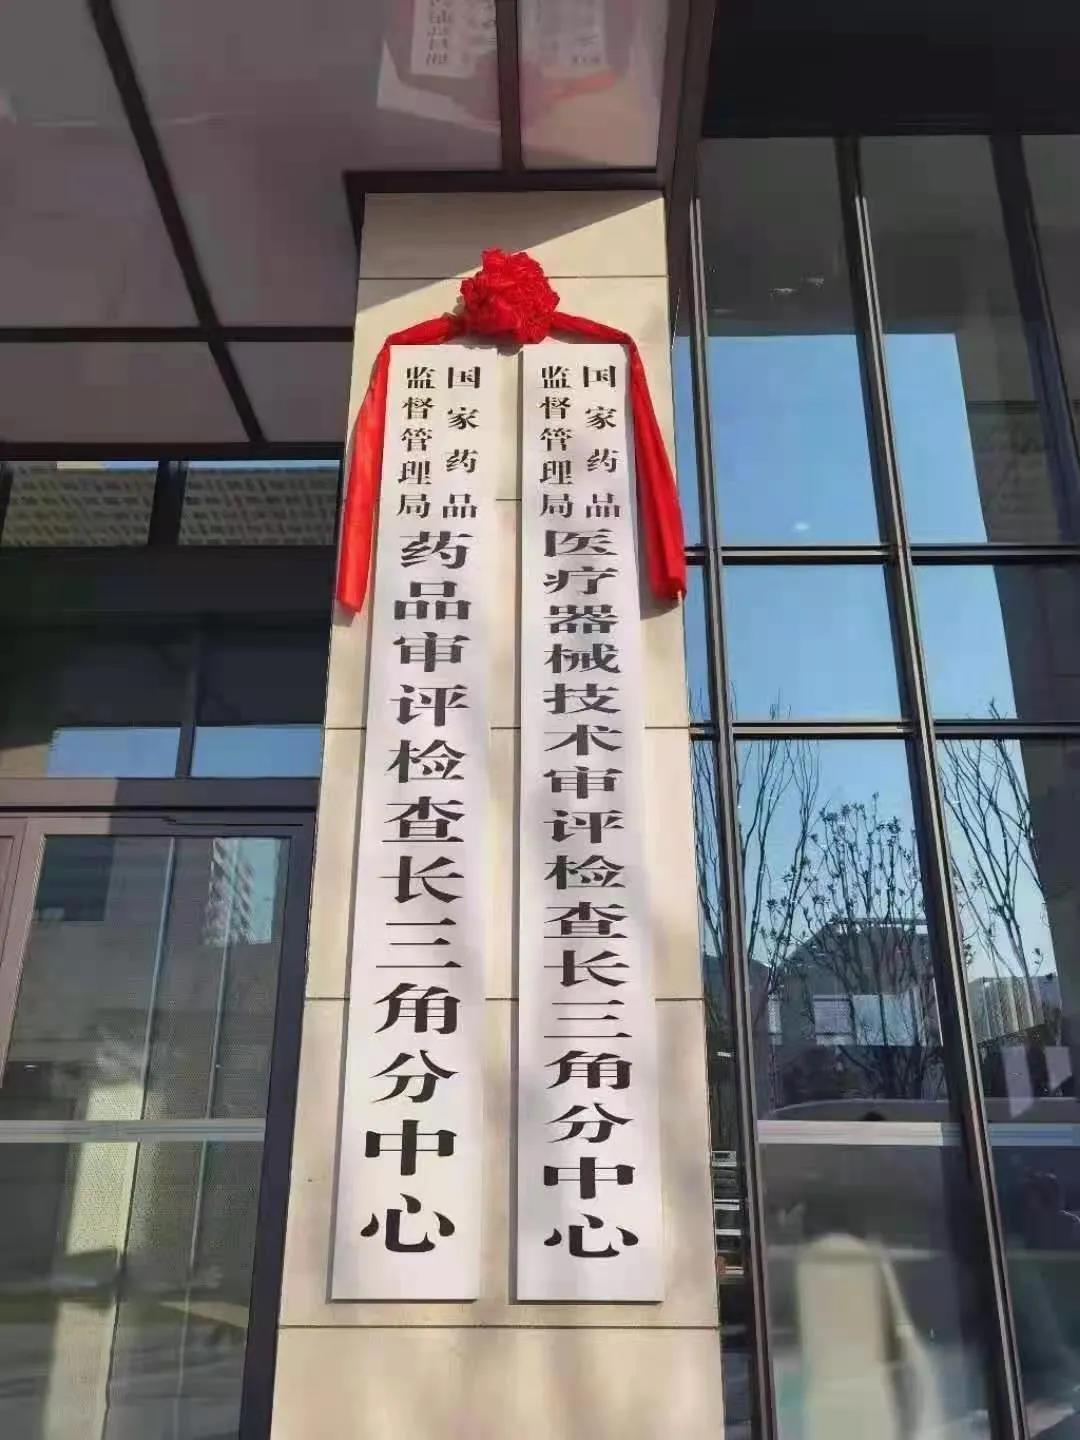 国家药品
监督管理局
医疗器械技术审评检查长三角分中心
国家药品
监督管理局
药品审评检查长三角分中心